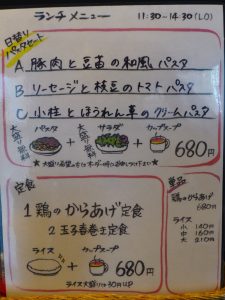 ランチメニュー 11:30~14:30(LO)
日替りパスタセット
A. 豚肉と豆苗の和風パスタ
B. ソーセージと枝豆のトマトパスタ
C. 小柱とほうれん草のクリームパスタ
パスタ サラダ カップスープ
大盛り無料 + 大盛り無料 + 680円
定食
1 鶏のからあげ定食
2 玉子春巻き定食
ライス カップスープ
+ 680円
ライス大盛りは+30円UP
単品
鶏のからあげ
680円
ライス
小 140円
中 160円
大 210円